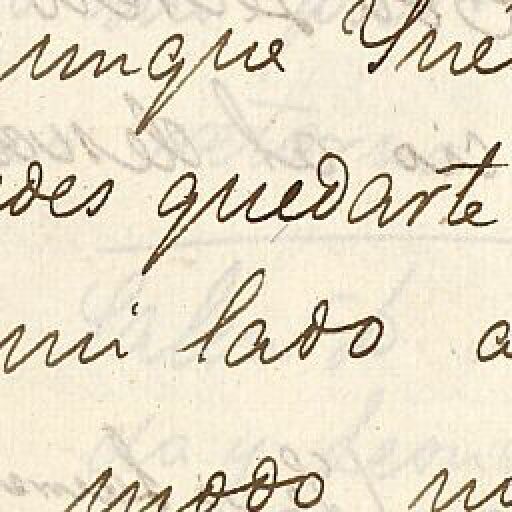 unque
des quedarte
mi lado a
modo